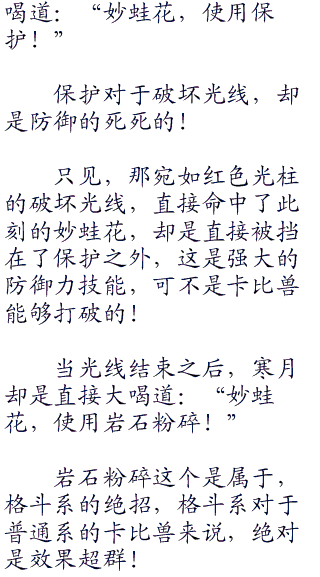 喝道：“妙蛙花，使用保
护！”
保护对于破坏光线，却
是防御的死死的！
只见，那宛如红色光柱
的破坏光线，直接命中了此
刻的妙蛙花，却是直接被挡
在了保护之外，这是强大的
防御力技能，可不是卡比兽
能够打破的！
当光线结束之后，寒月
却是直接大喝道：“妙蛙
花，使用岩石粉碎！”
岩石粉碎这个是属于，
格斗系的绝招，格斗系对于
普通系的卡比兽来说，绝对
是效果超群！